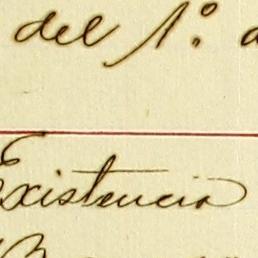 del 1.º
Existencia